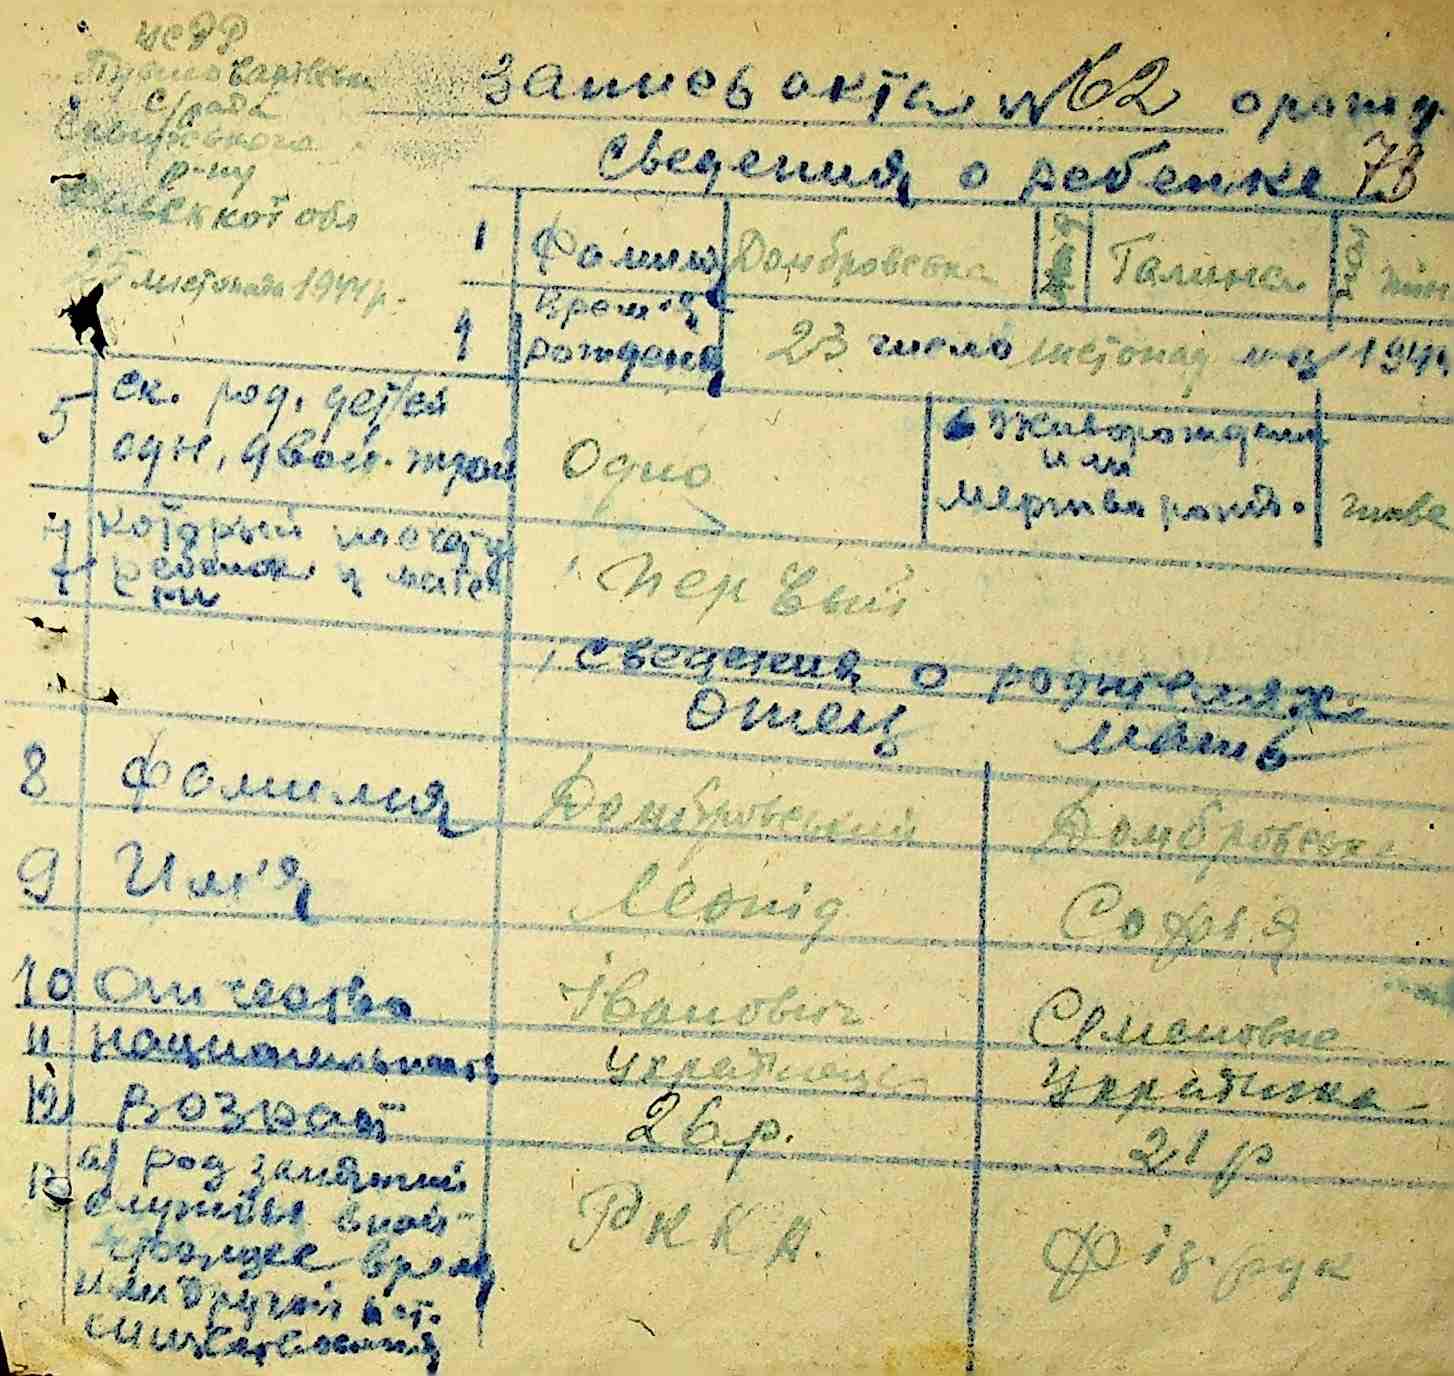 УСРР
Пустоварівська
с/рада
Сквирського
р-ну
Київської обл
25 листопада 1944 р.
Запись акта №62 о рожд.
Сведения о ребенке 73
1 Фамилия Домбровська Имя Галина
4 Время рождения 23 число листопад м-ц 194
5 ск. род. детей одн, двой. трой Одно 6 Живорожден или мертворожд. живе
7 который по счету ребенок у матери первый
Сведения о родителях
Отец Мать
8 Фамилия Домбровський Домбровська
9 Им'я Леонід Софія
10 Отчество Іванович Семеновна
11 Национальность Українець Українка
12 Возраст 26 р. 21 р
13 а) род занятий службы в настоящее время или другой ист. существования РККА. Фіз.рук